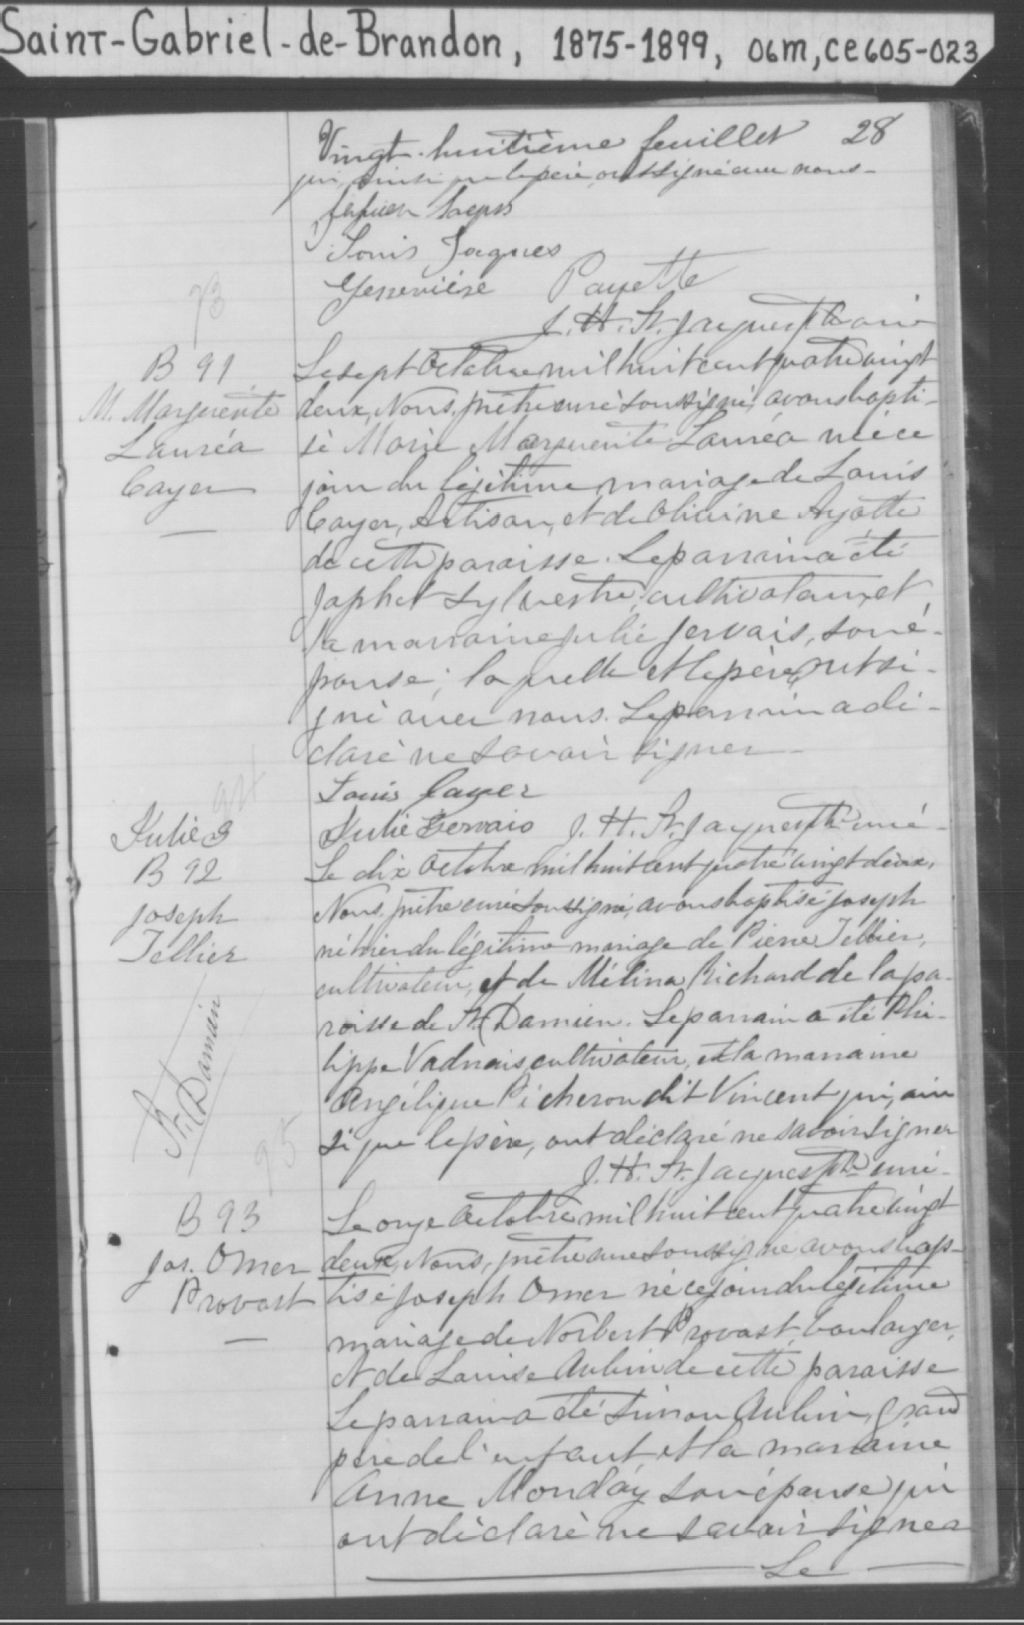 Saint-Gabriel-de-Brandon, 1875-1899, 06m, ce605-023
Vingt-huitième feuillet 28
qui, ainsi que le père, ont signé avec nous-
Louis Jaques
Geneviève Payette
J. H. St. Jacques Ptre curé
93
B 91
M. Marguerite
Lauréa
Cayer
Le sept Octobre mil huit cent quatre vingt
deux, Nous, prêtre curé soussigné, avons bapti-
sé Marie Marguerite Lauréa née ce
jour du légitime mariage de Louis
Cayer, Artisan, et de Olivine Ayotte
de cette paroisse. Le parrain a été
Japhet Sylvestre, cultivateur, et
la marraine Julie Gervais, son é-
pouse; laquelle et le père, ont si-
gné avec nous. Le parrain a dé-
claré ne savoir signer-
Louis Cayer
Julie Gervais J. H. St. Jacques Ptre curé-
94
Julie G
B 92
Joseph
Tellier
St. Damien
Le dix Octobre mil huit cent quatre vingt deux,
Nous, prêtre curé soussigné, avons baptisé Joseph
né hier du légitime mariage de Pierre Tellier,
cultivateur, et de Mélina Richard de la pa-
roisse de St. Damien. Le parrain a été Phi-
lippe Vadnais cultivateur, et la marraine
Angélique Picheron dit Vincent qui, ain
si que le père, ont déclaré ne savoir signer
J. H. St. Jacques Ptre curé-
95
B 93
Jos. Omer
Provost
Le onze Octobre mil huit cent quatre vingt
deux, Nous, prêtre curé soussigné avons bap-
tisé Joseph Omer né ce jour du légitime
mariage de Norbert Provost, boulanger,
et de Louise Aubin de cette paroisse
Le parrain a été Simon Aubin, grand
père de l'enfant, et la marraine
Anne Monday son épouse qui
ont déclaré ne savoir signer
Le